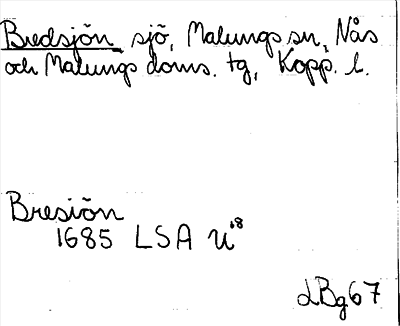 Bredsjön sjö, Malungs sn, Nås
och Malungs doms. tg, Kopp. l.
Bresiön
1685 LSA U18
LBg67